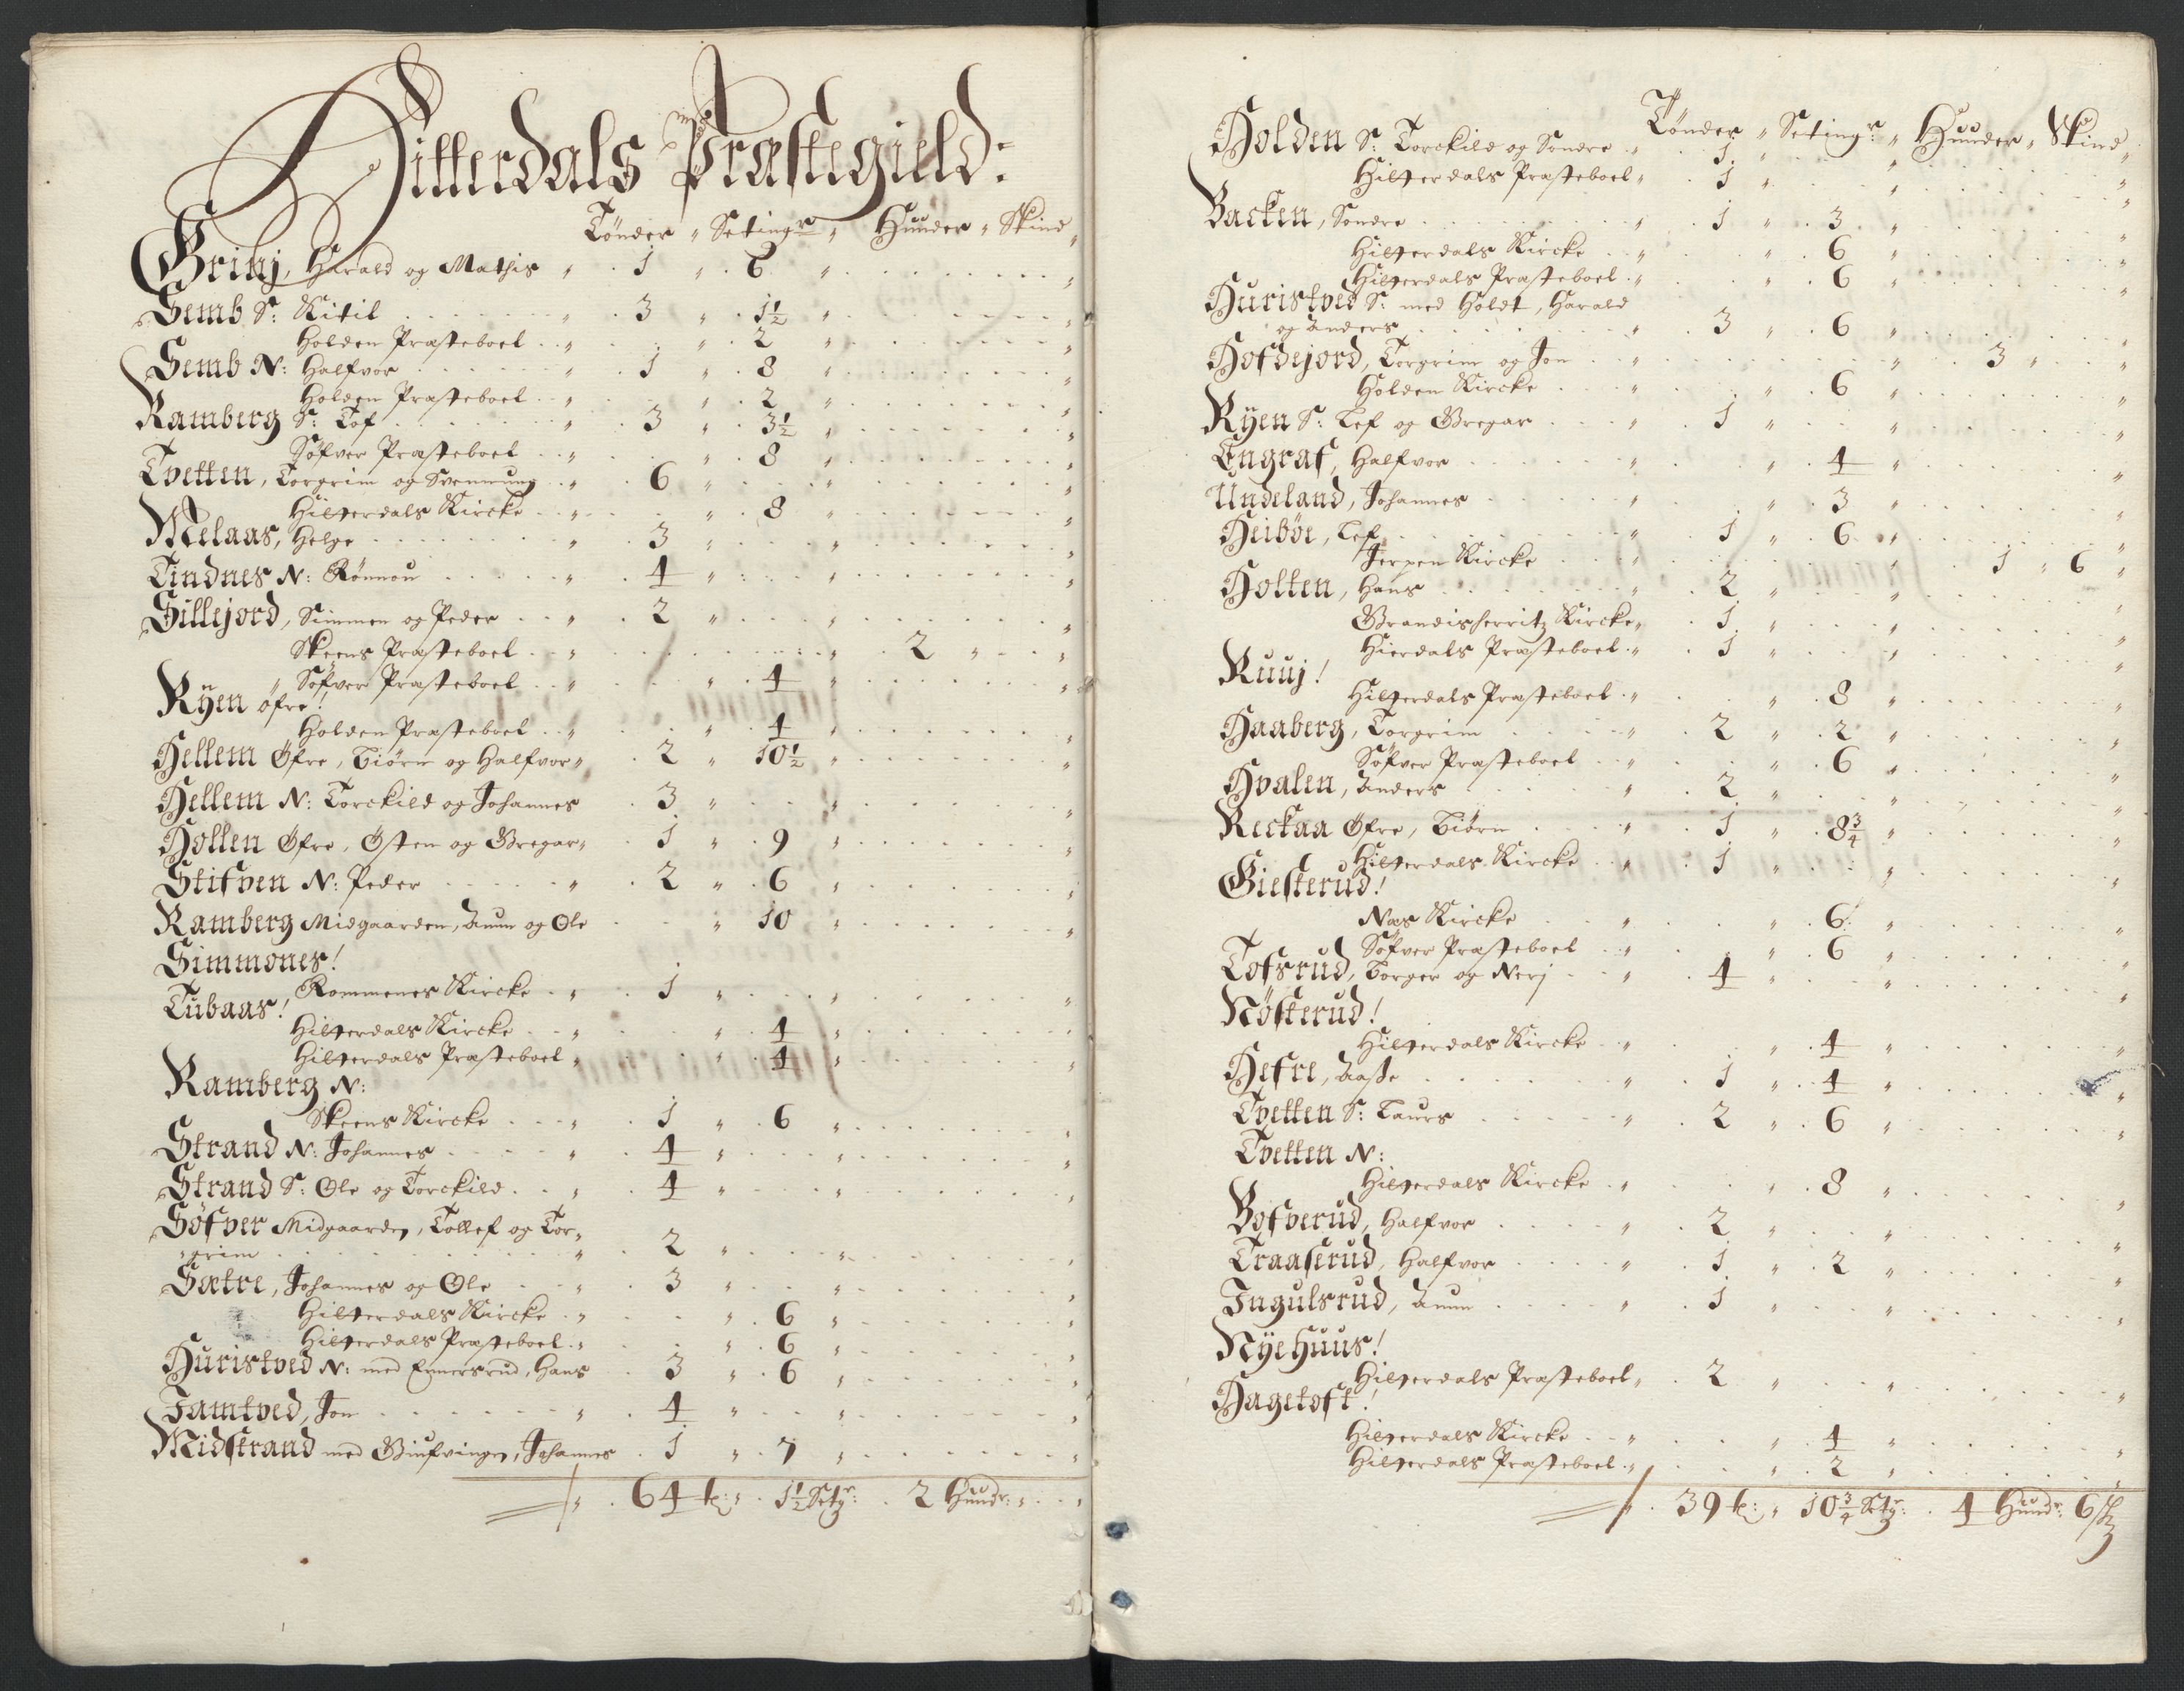 Hitterdals Præstegield:
Tönder " Setingr " Hunder " Skind
Grinj, Harald og Mathis " 1 " 6 "
Semb S: Kitil " 3 " 1½ "
Holden Præsteboel " 2 "
Semb N: Halfvor " 1 " 8 "
Holden Præsteboel " 2 "
Ramberg S: Tof " 3 " 3½ "
Söfver Præsteboel " 8 "
Tvetten, Torgrim og Svennung " 6 "
Hitterdals Kircke " 8 "
Melaas, Helge " 3 "
Tindnes N: Rönnou " 4 "
Sillejord, Simmen og Peder " 2 "
Skeens Præsteboel " 2 "
" Söfver Præsteboel " 4 "
Rÿen öfre!
Holden Præsteboel " 4 "
Hellem Öfre, Biörn og Halfvor " 2 " 10½ "
Hellem N: Torckild og Johannes 3 "
Hollen Öfre, Östen og Gregar " 1 " 9 "
Stifven N: Peder " 2 " 6 "
Ramberg Midgaarden, Aunn og Ole " 10 "
Simmones!
Rommenes Kircke " 1 "
Tubaas!
Hitterdals Kircke " 4 "
Hitterdals Præsteboel " 4 "
Ramberg N:
Skeens Kircke " 1 " 6 "
Strand N: Johannes " 4 "
Strand S: Ole og Torckild " 4 "
Söfver Midgaarden, Tollef og Tor"
"grim " 2 "
Sætre, Johannes og Ole " 3 "
Hitterdals Kircke " 6 "
Hitterdals Præsteboel " 6 "
Huristved N: med Emersrud, Hans 3 " 6 "
Jamtved, Jon " 4 "
Midstrand med Giufvingen, Johannes 1 " 7 "
" 64 t: " 1½ Setgr: 2 Hundr: "
Tönder " Setingr " Hunder " Skind
Holden S: Torckild og Sondre " 1 "
Hitterdals Præsteboel " 1 "
Backen, Sondre " 1 " 3 "
Hitterdals Kircke " 6 "
Hitterdals Præsteboel " 6 "
Huristved S: med Holdt, Harald
og Anders " 3 " 6 "
Hofdejord, Torgrim og Jon " 3 "
Holden Kircke " 6 "
Rÿen S: Lef og Gregar " 1 "
Engraf, Halfvor " 4 "
Undeland, Johannes " 3 "
Heiböe, Lef " 1 " 6 "
Jerpen Kircke " 1 " 6 "
Holten, Hans " 2 "
Brandisherritz Kircke " 1 "
Hierdals Præsteboel " 1 "
Ruuj!
Hitterdals Præsteboel " 8 "
Haaberg, Torgrim " 2 " 2 "
Söfver Præsteboel " 6 "
Hvalen, Anders " 2 "
Reckaa Öfre, Biörn " 1 " 8¾ "
Hitterdals Kircke " 1 "
Giesterud!
Næs Kircke " 6 "
Söfver Præsteboel " 6 "
Tofsrud, Borger og Nerj " 4 "
Nösterud!
Hitterdals Kircke " 4 "
Hefre, Aasse " 1 " 4 "
Tvetten S: Laurs " 2 " 6 "
Tvetten N:
Hitterdals Kircke " 8 "
Bofverud, Halfvor " 2 "
Traaserud, Halfvor " 1 " 2 "
Ingulsrud, Aunn " 1 "
Nÿehuus!
Hitterdals Præsteboel " 2 "
Hagetoft!
Hitterdals Kircke " 4 "
Hitterdals Præsteboel " 2 "
" 39 t: " 10¾ Setgr: 4 Hundr: 6 sk